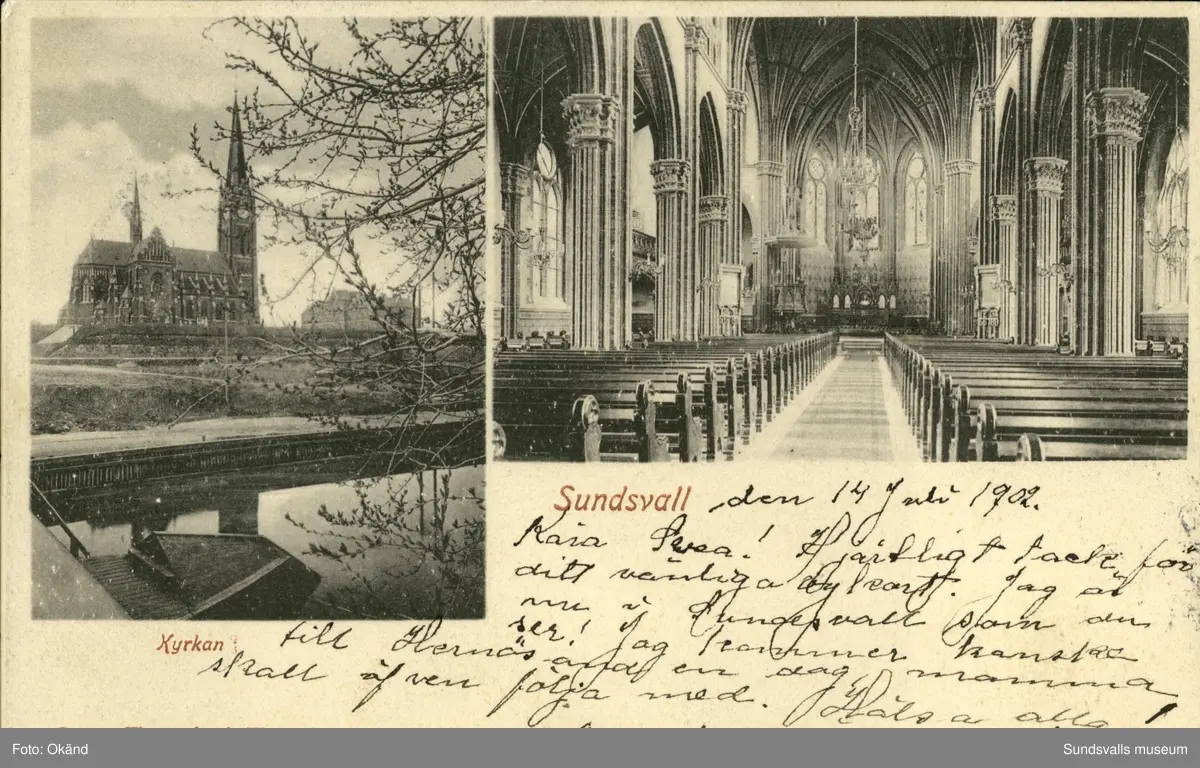 Sundsvall den 14 Juli 1902.
Kära Svea! Hjärtligt tack för
ditt vänliga vykort. Jag är
nu i Sundsvall som du
ser! Jag kommer kanske
Kyrkan till Hernösand en dag, mamma
skall äfven följa med. Hälsa alla!
Foto: Okänd
Sundsvalls museum